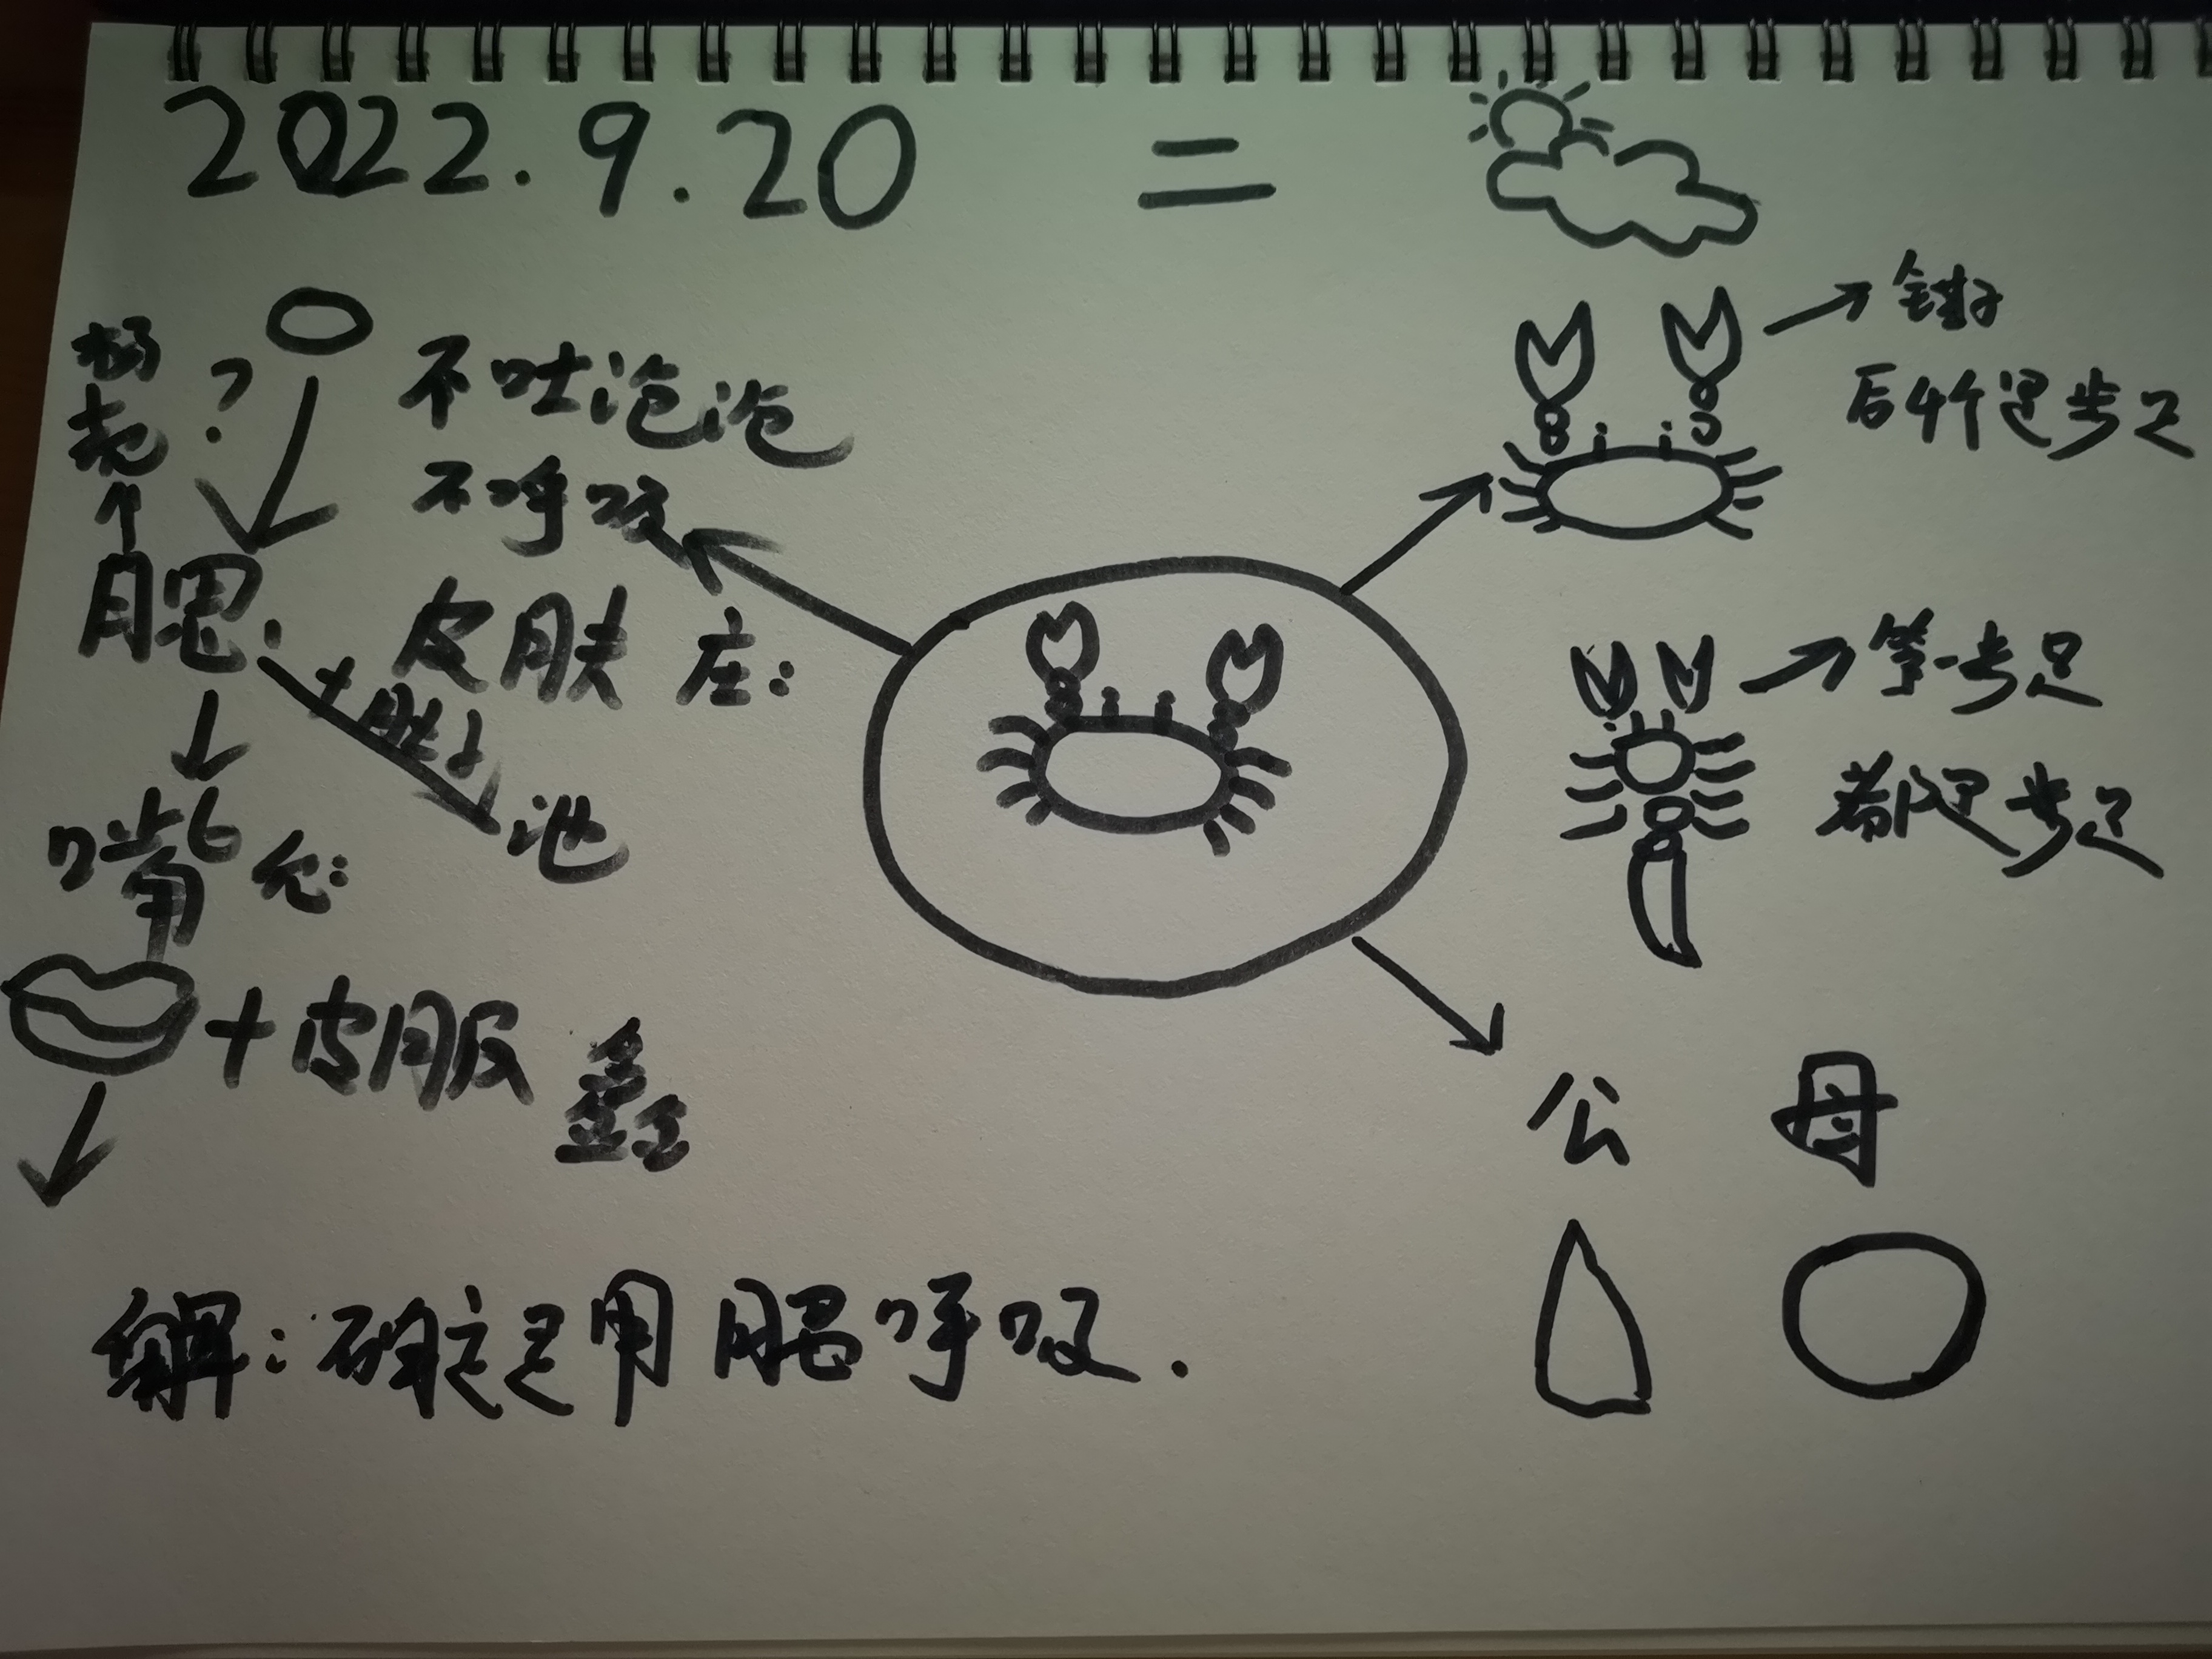 2022.9.20 二
杨
尧
?
不吐泡泡
不呼吸
腮
皮肤 庄:
+肚子
池
嘴 允:
+皮服 鑫
解:确定是用腮呼吸.
钳子
后4个是步足
第一步足
都是步足
公 母